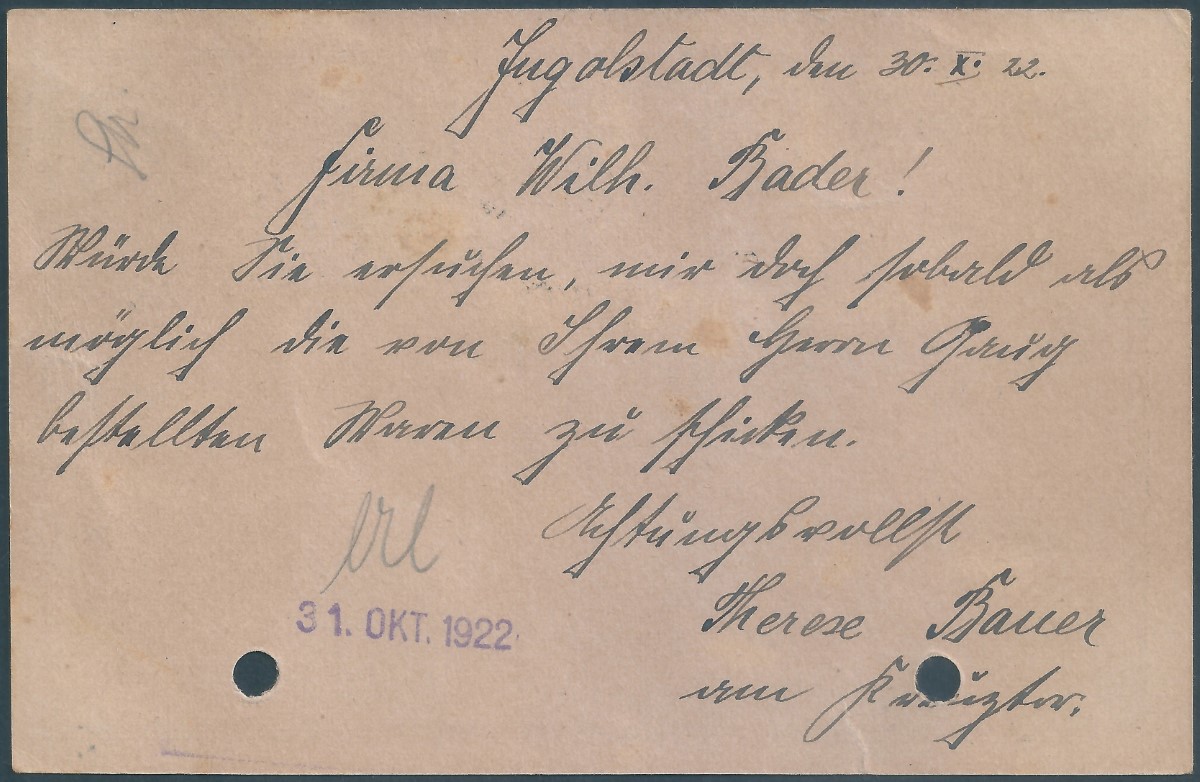 Ingolstadt, den 30. X. 22.
Firma Wilh. Bader!
Würde Sie ersuchen, mir doch sobald als
möglich die von Ihrem Herrn Gaug
bestellten Waren zu schicken.
Achtungsvollst
erl
31. OKT. 1922
Therese Bauer
am Kreuztor.